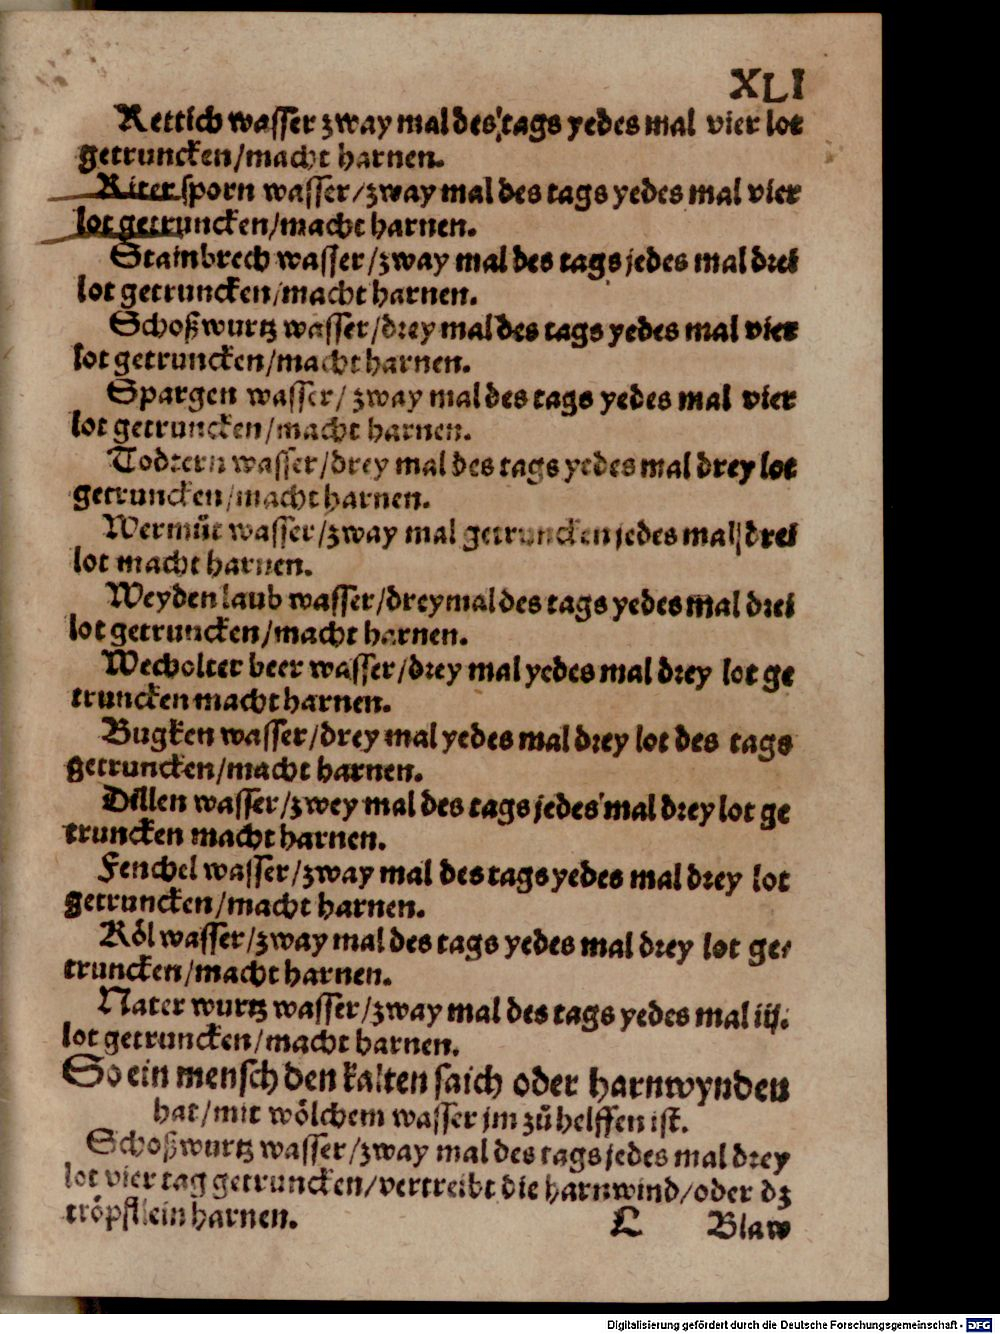 XLI
Rettich wasser zway mal des tags yedes mal vier lot
getruncken/macht harnen.
Riter sporn wasser/zway mal des tags yedes mal vier
lot getruncken/macht harnen.
Stainbrech wasser/zway mal des tags jedes mal drei
lot getruncken/macht harnen.
Schoßwurtz wasser/drey mal des tags yedes mal vier
lot getruncken/macht harnen.
Spargen wasser/ zway mal des tags yedes mal vier
lot getruncken/macht harnen.
Todtern wasser/drey mal des tags yedes mal drey lot
getruncken/macht harnen.
Wermůt wasser/zway mal getruncken jedes mal drei
lot macht harnen.
Weyden laub wasser/drey mal des tags yedes mal drei
lot getruncken/macht harnen.
Wecholter beer wasser/drey mal yedes mal drey lot ge
truncken macht harnen.
Bugken wasser/drey mal yedes mal drey lot des tags
getruncken/macht harnen.
Dillen wasser/zwey mal des tags jedes mal drey lot ge
truncken macht harnen.
Fenchel wasser/zway mal des tags yedes mal drey lot
getruncken/macht harnen.
Köl wasser/zway mal des tags yedes mal drey lot ge⸗
truncken/macht harnen.
Nater wurtz wasser/zway mal des tags yedes mal iij.
lot getruncken/macht harnen.
So ein mensch den kalten saich oder harnwynden
hat/mit wölchem wasser jm zů helffen ist.
Schoßwurtz wasser/zway mal des tags jedes mal drey
lot vier tag getruncken/vertreibt die harnwind/oder dz
tröpfflein harnen.
L Blaw
Digitalisierung gefördert durch die Deutsche Forschungsgemeinschaft - DFG